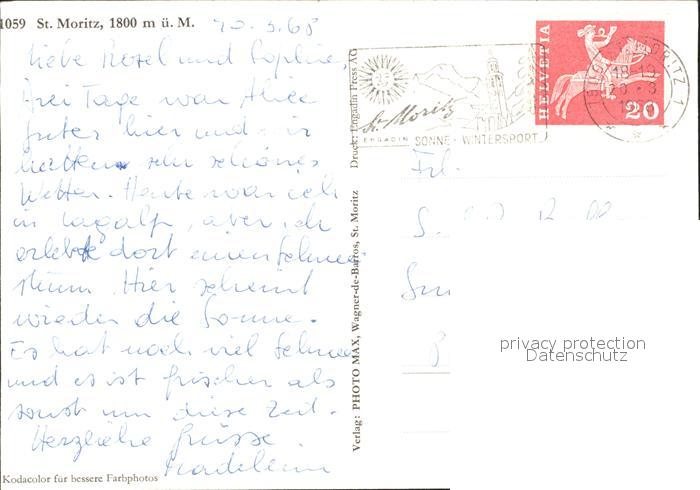 1059 St. Moritz, 1800 m ü. M.
20.3.68
Liebe Rosel und Sophie,
Drei Tage war Alice
Suter hier und wir
hatten sehr schönes
Wetter. Heute war ich
in Lagalp, aber ich
erlebte dort einen Schnee
sturm. Hier scheint
wieder die Sonne.
Es hat noch viel Schnee
und es ist frischer als
sonst um diese Zeit.
Herzliche Grüsse
Madeleine
Kodacolor für bessere Farbphotos
Verlag: PHOTO MAX, Wagner-de-Barros, St. Moritz Druck: Engadin Press AG
St. Moritz
ENGADIN SONNE - WINTERSPORT
HELVETIA
20
ST. MORITZ 1
Frl.
privacy protection
Datenschutz